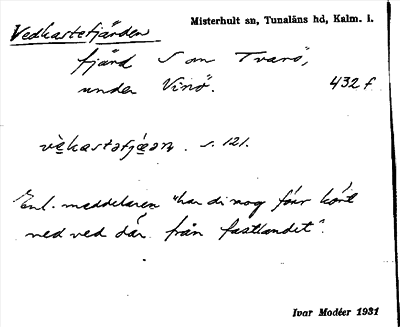 Vedkastefjärden
Misterhult sn, Tunaläns hd, Kalm. l.
fjärd S om Tvarö,
under Vinö. 432 f
vèkastəfjæɑn. s. 121.
Enl. meddelaren "har di nog förr kört
ned ved där från fastlandet".
Ivar Modéer 1931